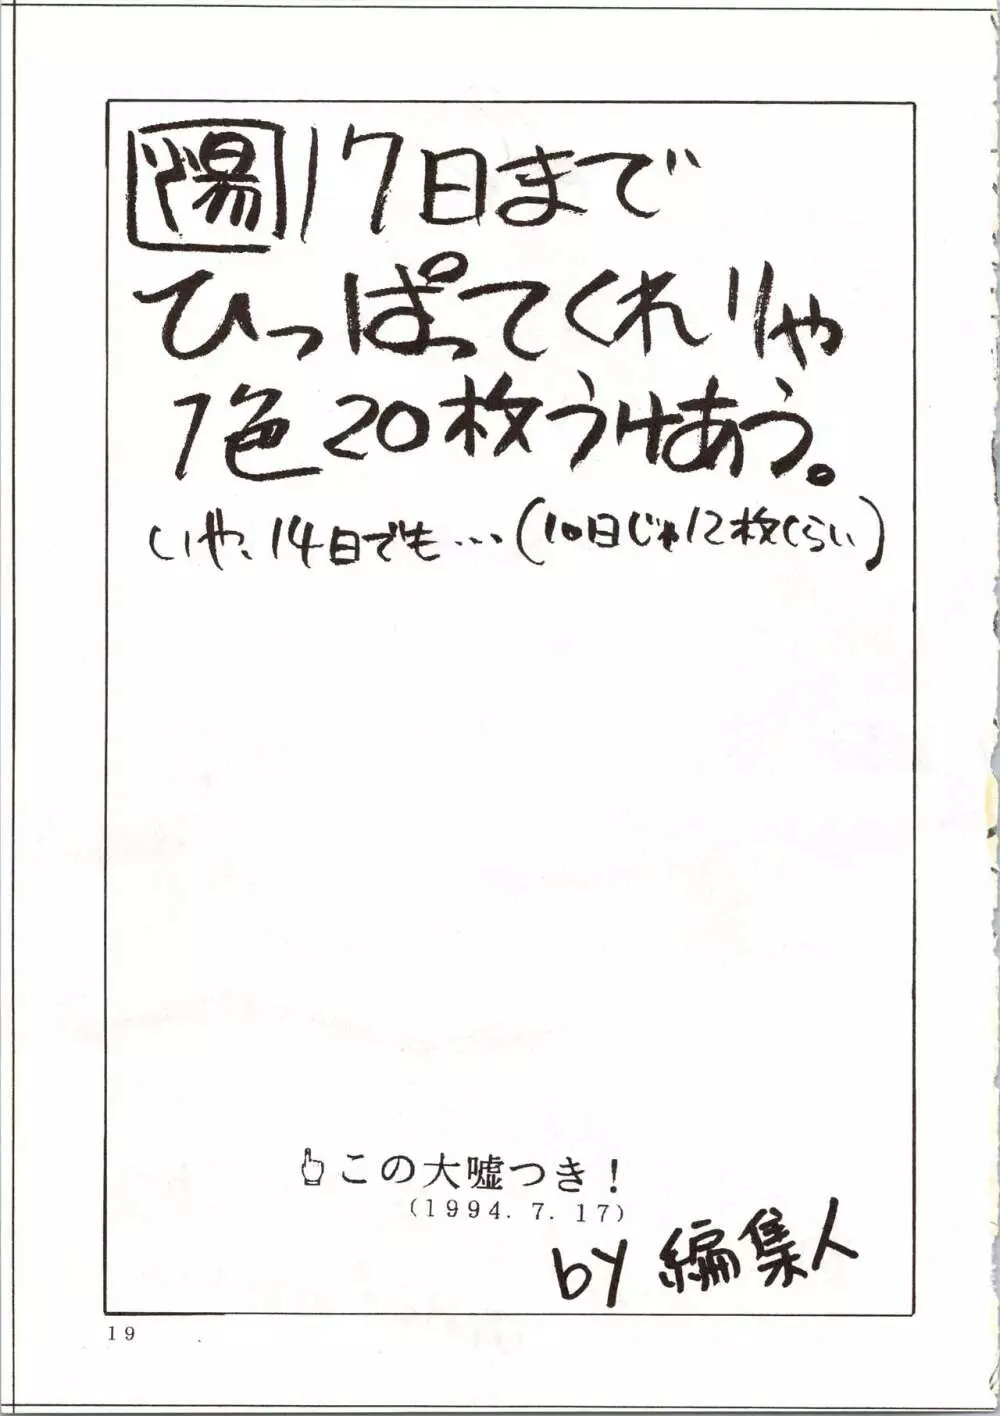 陽 17日まで
ひっぱってくれりゃ
1色20枚うけあう。
いや、14日でも…(10日じゃ12枚くらい)
👆この大嘘つき!
(1994.7.17)
by 編集人
19